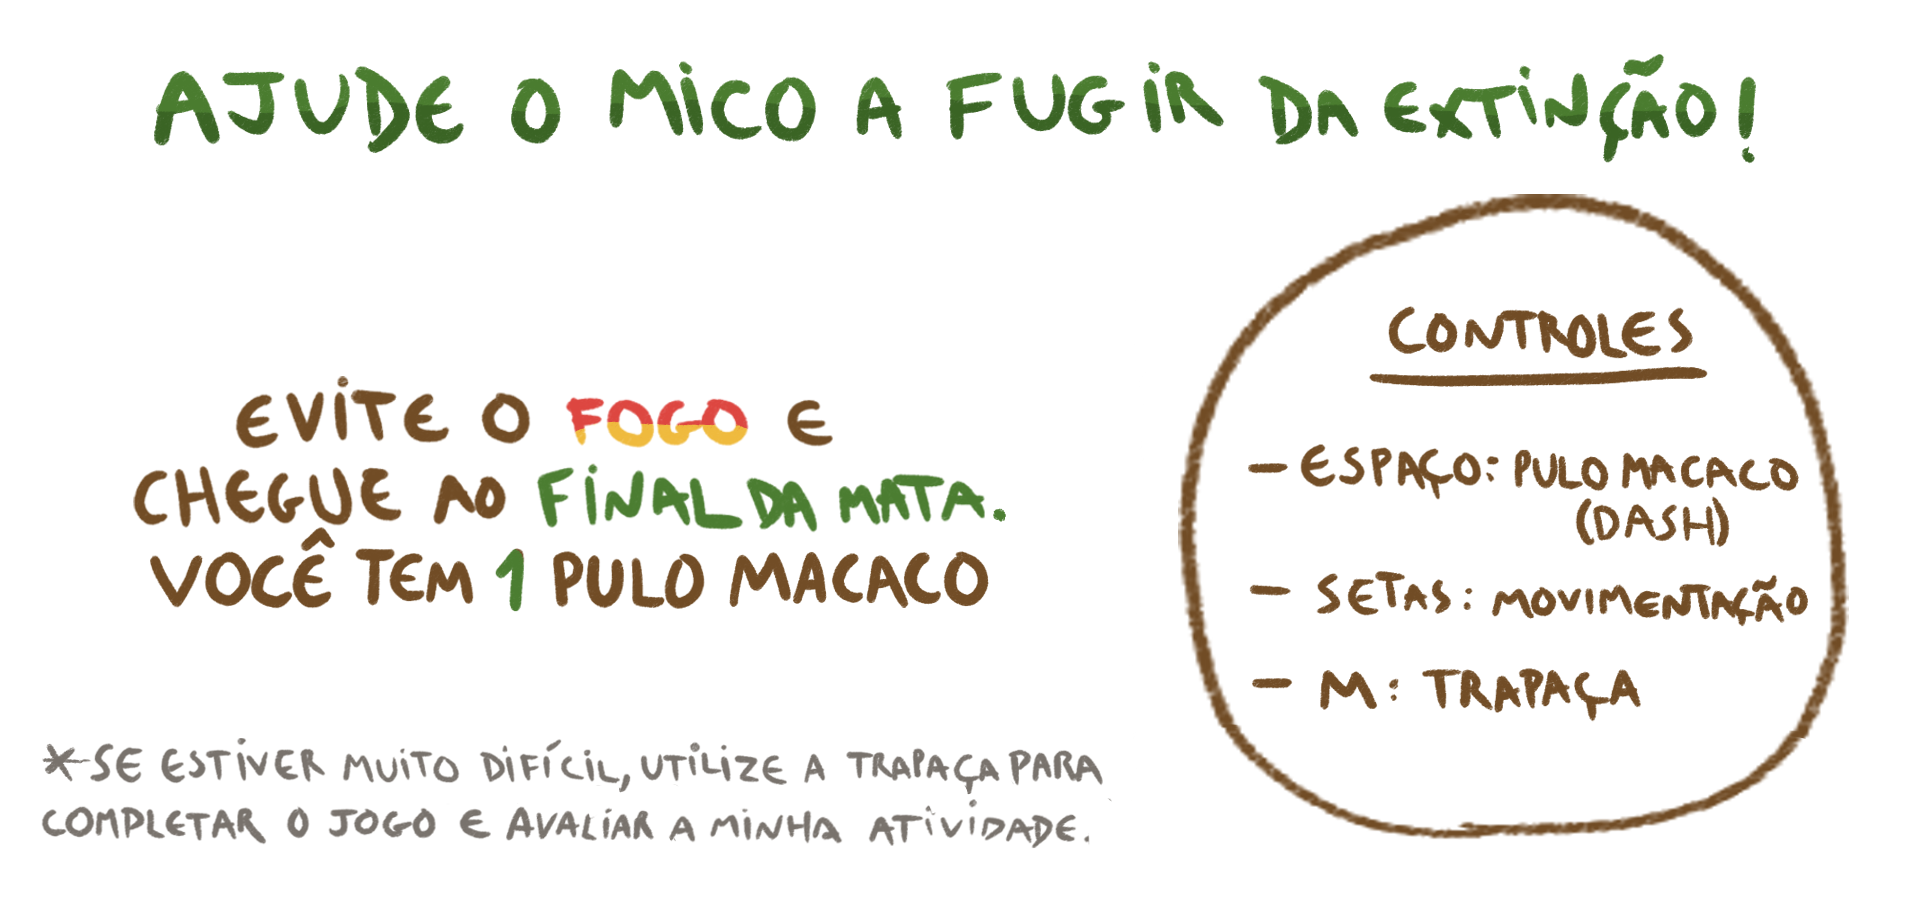 AJUDE O MICO A FUGIR DA EXTINÇÃO!
EVITE O FOGO E
CHEGUE AO FINAL DA MATA.
VOCÊ TEM 1 PULO MACACO
*-SE ESTIVER MUITO DIFÍCIL, UTILIZE A TRAPAÇA PARA
COMPLETAR O JOGO E AVALIAR A MINHA ATIVIDADE.
CONTROLES
- ESPAÇO: PULO MACACO
(DASH)
- SETAS: MOVIMENTAÇÃO
- M: TRAPAÇA